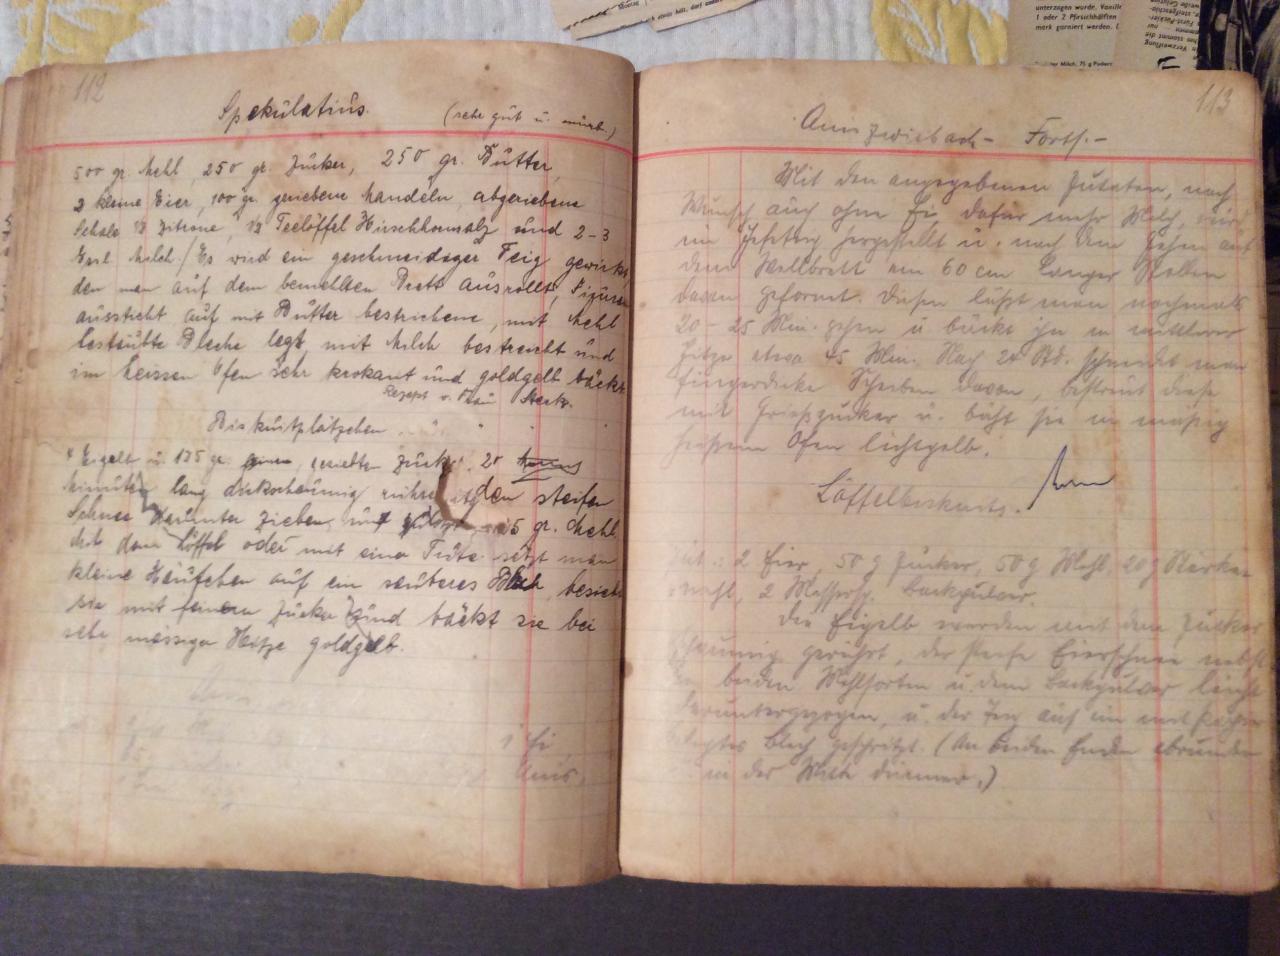 112
Spekulatius. (sehr gut u. mürb.)
500 gr. Mehl, 250 gr. Zucker, 250 gr. Butter,
2 kleine Eier, 100 gr. geriebene Mandeln, abgeriebene
Schale ½ Zitrone, ½ Teelöffel Hirschhornsalz und 2-3
Essl. Milch./ Es wird ein geschmeidiger Teig gewirkt,
den man auf dem bemehlten Brett ausrollt, Figuren
aussticht auf mit Butter bestrichene, mit Mehl
bestäubte Bleche legt, mit Milch bestreicht und
im heissen Ofen sehr krokant und goldgelb bäckt.
Rezept v. Frau
Biskuitplätzchen
4 Eigelb u. 175 gr. gesiebten Zucker 20
Minuten lang dickschaumig rühren, den steifen
Schnee darunter ziehen und 175 gr. Mehl.
Mit dem Löffel oder mit einer Tüte setzt man
kleine Häufchen auf ein sauberes Blech, besiebt
sie mit feinem Zucker und bäckt sie bei
sehr mässiger Hitze goldgelb.
1 Ei
Anis,
113
Aniszwieback - Forts. -
Mit den angegebenen Zutaten, nach
Wunsch auch ohne Ei, dafür mehr Milch, wird
ein Hefeteig hergestellt u. nach dem Gehen auf
dem Wellbrett ein 60 cm langer Stollen
davon geformt. Diesen läßt man nochmals
20 - 25 Min. gehen u. bäckt ihn in mittlerer
Hitze etwa 45 Min. Nach 24 Std. schneidet man
fingerdicke Scheiben davon, bestreut diese
mit Grießzucker u. bäht sie in mäßig
heißem Ofen lichtgelb.
Löffelbiskuits.
Zut.: 2 Eier, 50 g Zucker, 50 g Mehl, 20 g Stärke-
mehl, 2 Messersp. Backpulver.
Die Eigelb werden mit dem Zucker
schaumig gerührt, der steife Eierschnee nebst
den beiden Mehlsorten u. dem Backpulver leicht
daruntergezogen, u. der Teig auf ein mit Papier
belegtes Blech gespritzt. (An beiden Enden abrunden
in der Mitte dünner.)